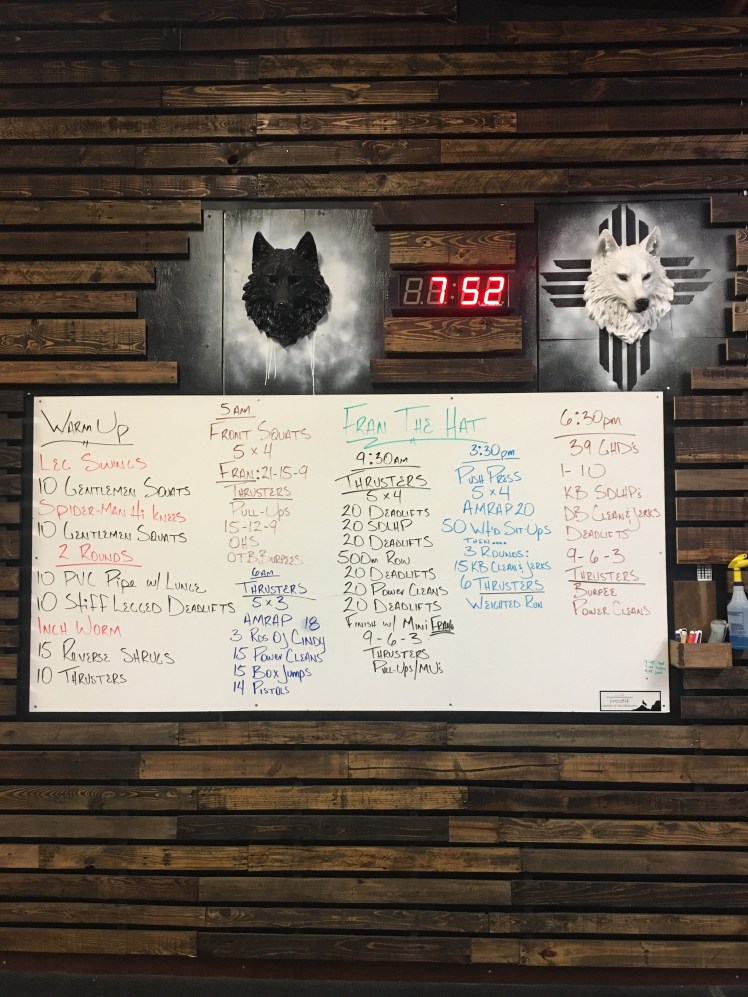 7 52
Warm Up
Leg Swings
10 Gentlemen Squats
Spider-Man Hi Knees
10 Gentlemen Squats
2 Rounds
10 PVC Pipe w/ Lunge
10 Stiff Legged Deadlifts
Inch Worm
15 Reverse Shrugs
10 Thrusters
5am
Front Squats
5 x 4
Fran: 21-15-9
Thrusters
Pull-Ups
15-12-9
OHS
OTB Burpees
6am
Thrusters
5 x 3
AMRAP 18
3 Rds of Cindy
15 Power Cleans
15 Box Jumps
14 Pistols
Fran The Hat
9:30am
Thrusters
5 x 4
20 Deadlifts
20 SDLHP
20 Deadlifts
500m Row
20 Deadlifts
20 Power Cleans
20 Deadlifts
Finish w/ Mini Fran
9-6-3
Thrusters
Pull-Ups/MU's
3:30pm
Push Press
5 x 4
AMRAP 20
50 Wt'd Sit-Ups
Then....
3 Rounds:
15 KB Clean & Jerks
6 Thrusters
Weighted Run
6:30pm
39 GHD's
1-10
KB SDLHP's
DB Clean & Jerks
Deadlifts
9-6-3
Thrusters
Burpee
Power Cleans